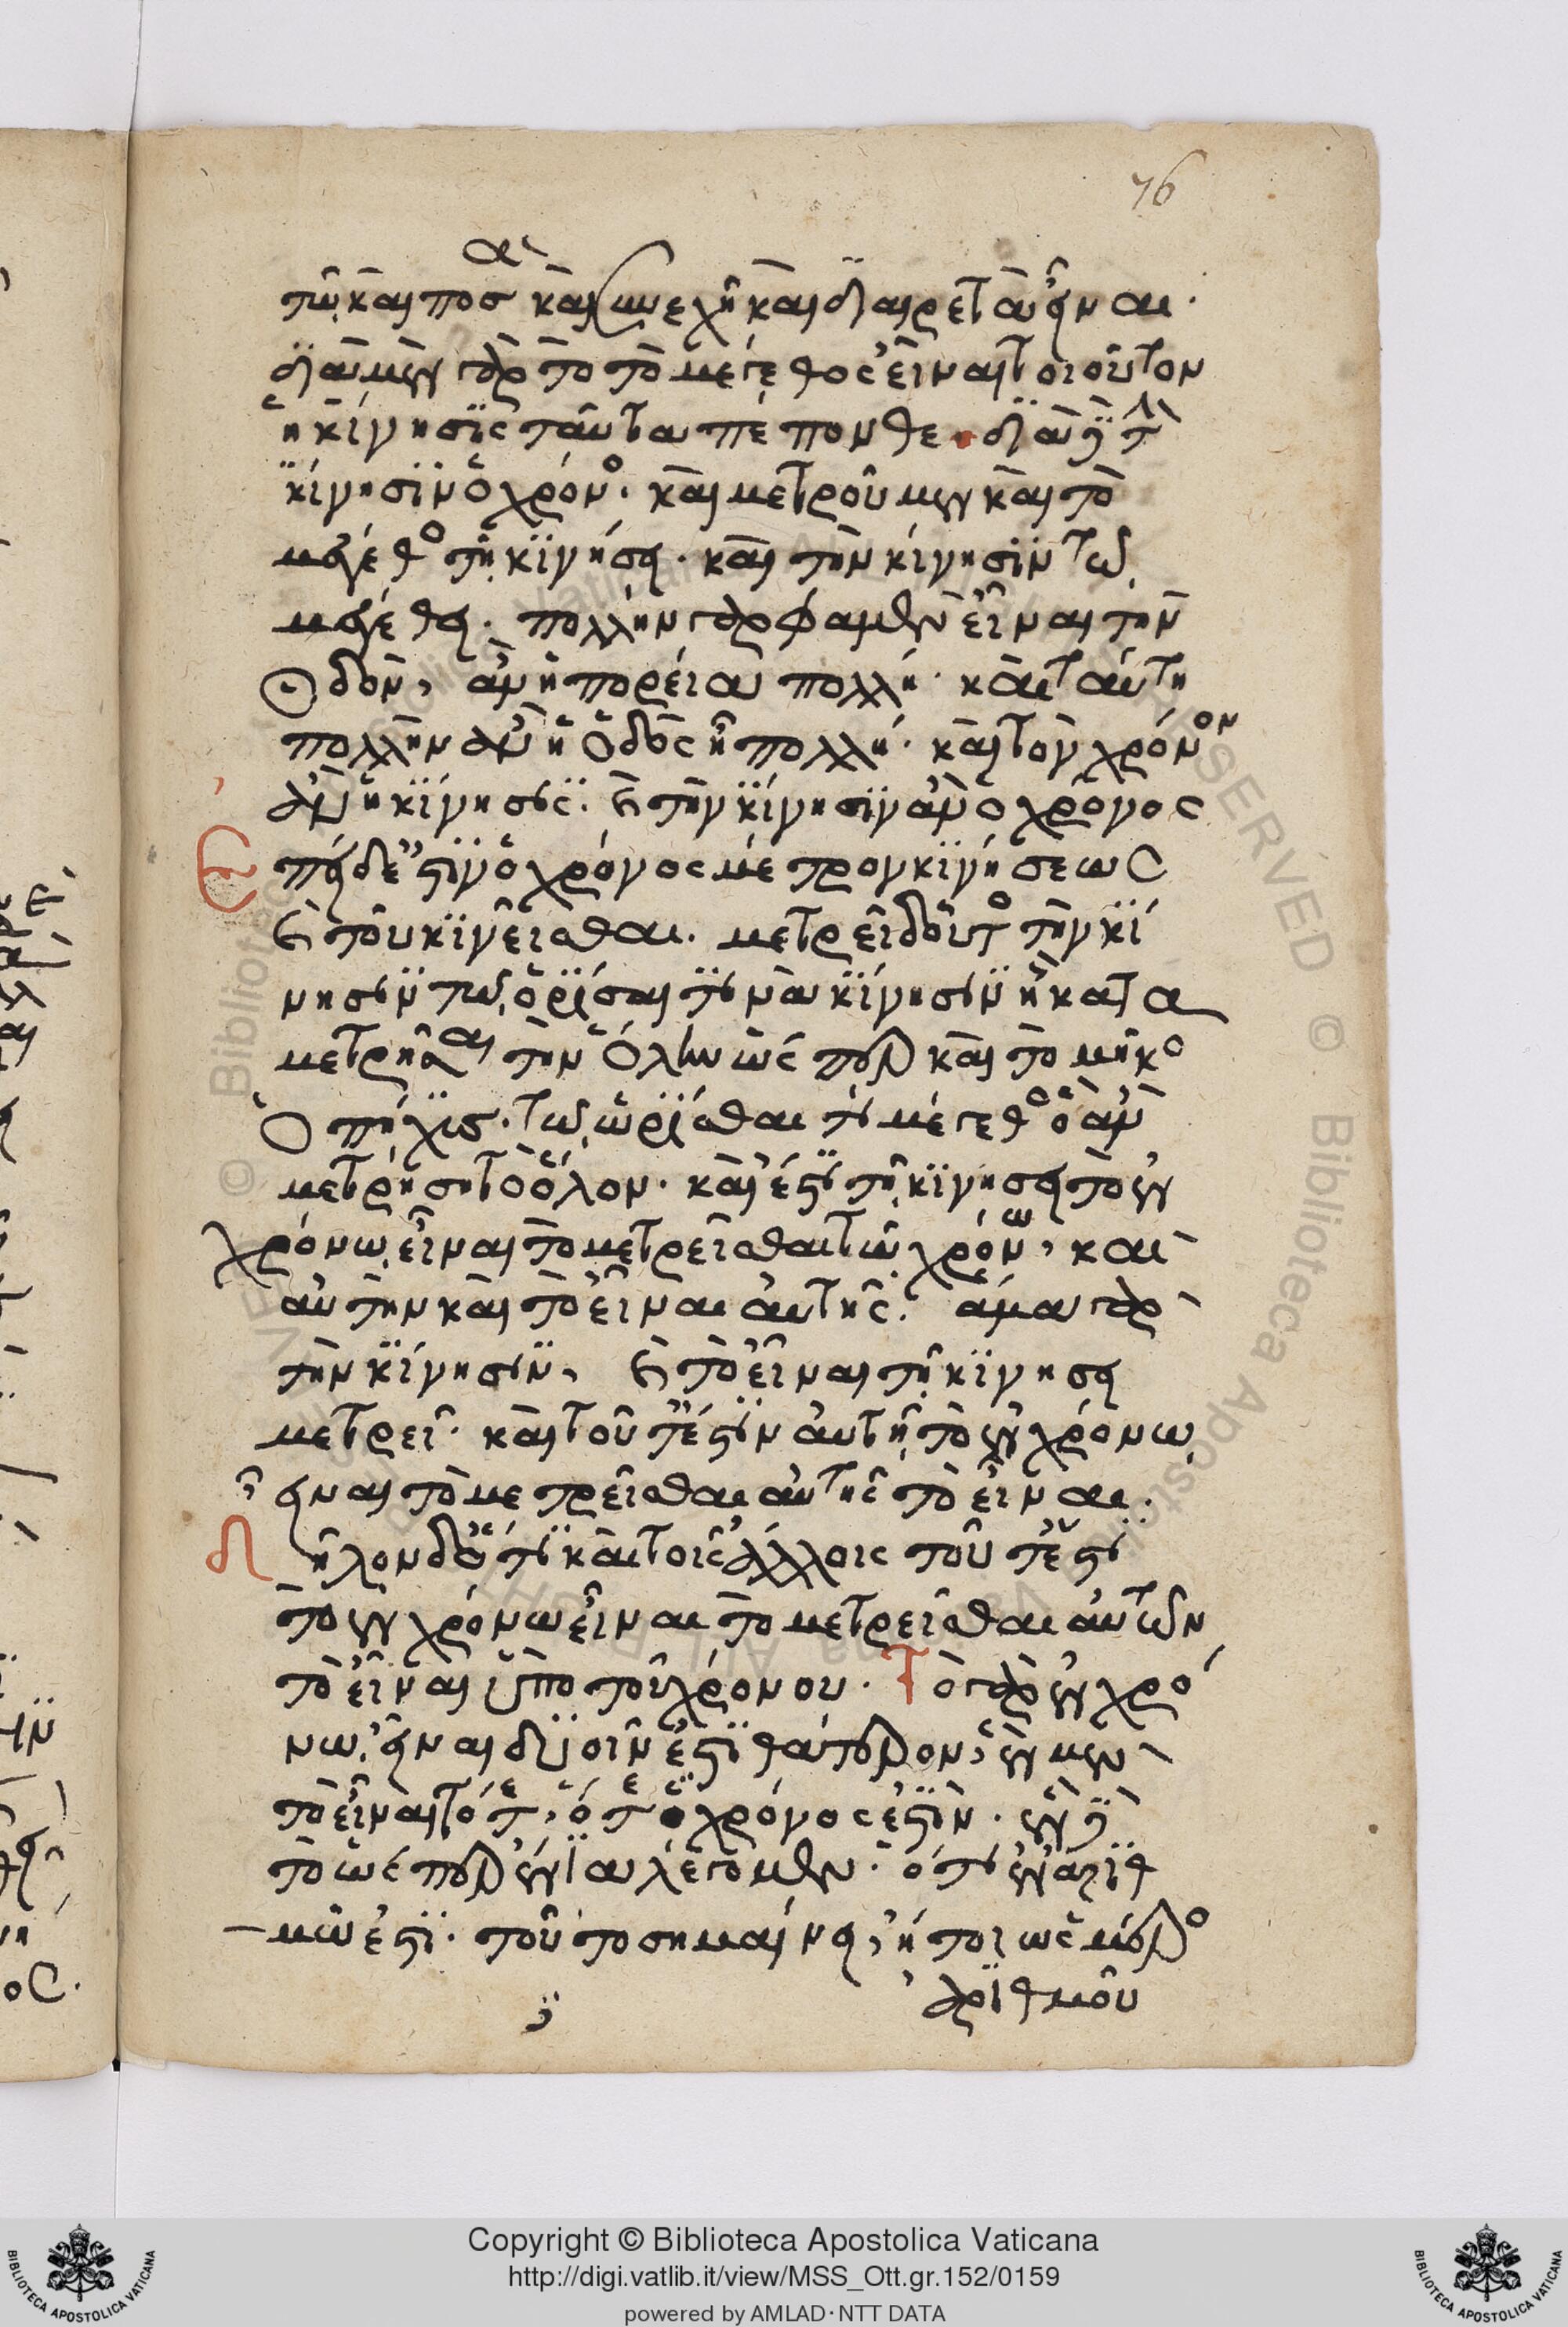 76
τῶ καὶ ποσὰ καὶ συνεχῆ καὶ διαιρετὰ εἶναι·
διὰ μὲν γὰρ τὸ τὸ μέγεθος εἶναι τοιοῦτον
ἡ κίνησις ταῦτα πέπονθε· διὰ δὲ τὴν
κίνησιν ὁ χρόνος· καὶ μετροῦμεν καὶ τὸ
μέγεθος τῆ κινήσει· καὶ τὴν κίνησιν τῶ
μεγέθει· πολλὴν γὰρ φαμὲν εἶναι τὴν
ὁδὸν, ἂν ἡ πορεία πολλή· καὶ ταύτη
πολλὴν ἂν ἡ ὁδὸς ἦ πολλή· καὶ τὸν χρόνον
ἂν ἡ κίνησις· καὶ τὴν κίνησιν ἂν ὁ χρόνος
Ἐπεὶ δέ ἐστιν ὁ χρόνος μέτρον κινήσεως
καὶ τοῦ κινεῖσθαι· μετρεῖ δ' οὗτος τὴν κί
νησιν τῶ ὁρίσαι τινὰ κίνησιν ἣ κατα
μετρήσει τὴν ὅλην ὥσπερ καὶ τὸ μῆκος
ὁ πῆχις· τῶ ὡρίσθαι τι μέγεθος ὃ ἂν
μετρήση τὸ ὅλον· καὶ ἔστι τῆ κινήσει τὸ ἐν
χρόνω εἶναι τὸ μετρεῖσθαι τῶ χρόνω, καὶ
αὐτὴν καὶ τὸ εἶναι αὐτῆς· ἅμα γὰρ
τὴν κίνησιν, καὶ τὸ εἶναι τῆ κινήσει
μετρεῖ· καὶ τοῦτ' ἔστιν αὐτῆ τὸ ἐν χρόνω
εἶναι τὸ μετρεῖσθαι αὐτῆς τὸ εἶναι·
Δῆλον δὲ ὅτι καὶ τοῖς ἄλλοις τοῦτ' ἔστι
τὸ ἐν χρόνω εἶναι τὸ μετρεῖσθαι αὐτῶν
τὸ εἶναι ὑπὸ τοῦ χρόνου· Τὸ γὰρ ἐν χρό
νω εἶναι δυοῖν ἐστὶ θάτερον, ἓν μὲν
τὸ εἶναι τότε, ὅτε ὁ χρόνος ἐστίν· ἓν δὲ
τὸ ὥσπερ ἔνια λέγομεν· ὅτι ἐν ἀριθ
μῶ ἐστί· τοῦτο σημαίνει, ἤτοι ὡς μέρος
ἀριθμοῦ
Copyright © Biblioteca Apostolica Vaticana
http://digi.vatlib.it/view/MSS_Ott.gr.152/0159
powered by AMLAD · NTT DATA